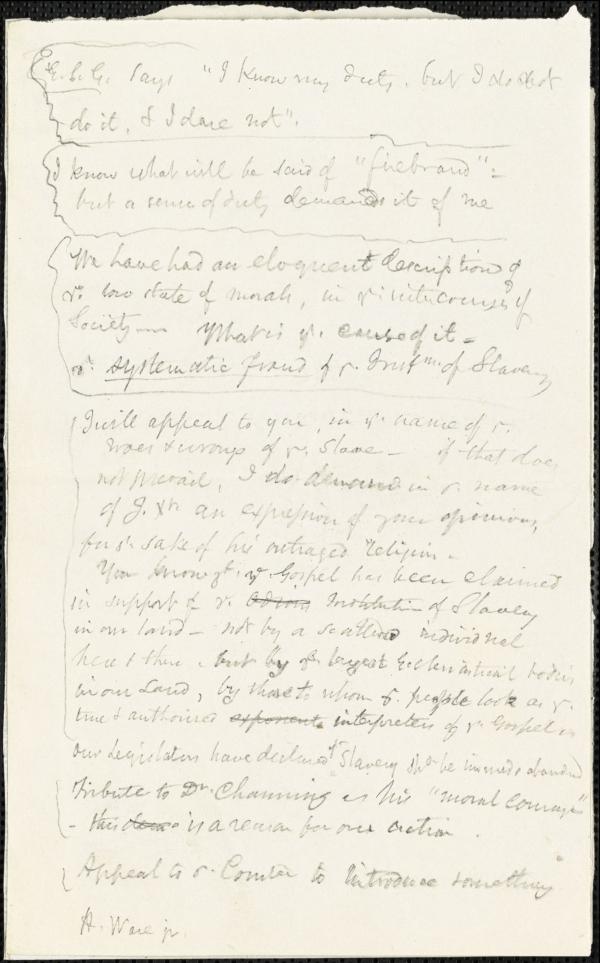 E.S.G. says "I know my duty, but I do not
do it, & I dare not".
I know what will be said of "firebrand" =
but a sense of duty demands it of me
We have had an eloquent description of
ye. low state of morals, in ye intercourse of
Society — What is ye. cause of it —
ye. systematic fraud of ye. Instn. of Slavery
I will appeal to you, in ye name of ye.
woes & wrongs of ye. Slave — if that does
not prevail, I do demand in ye name
of J. Xt. an expression of your opinions,
for ye. sake of his outraged religion —
You know yt. ye Gospel has been claimed
in support of ye. odious Institution of Slavery
in our land — not by a scattered individual
here & there, but by ye largest Ecclesiastical bodies
in our Land, by those to whom ye. people look as ye.
true & authorised exponents interpreters of ye Gospel in
our Legislators have declared yt Slavery shd be abandoned
Tribute to Dr. Channing & his "moral courage"
— this is a reason for our action.
Appeal to ye. Comtee to introduce something
H. Ware jr.